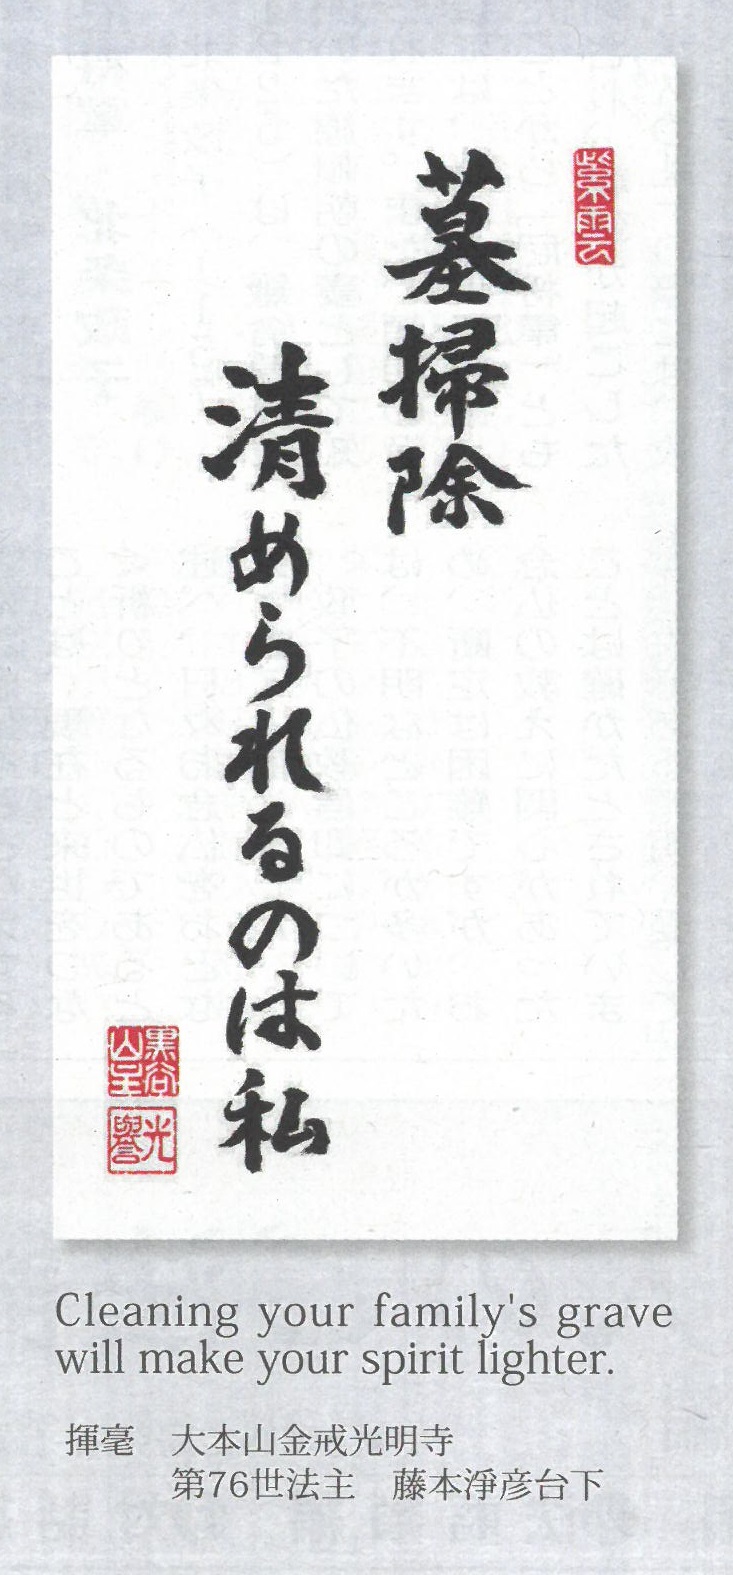 紫雲
墓掃除
清められるのは私
黒谷
山主
光
譽
Cleaning your family's grave
will make your spirit lighter.
揮毫　大本山金戒光明寺
第76世法主　藤本淨彦台下